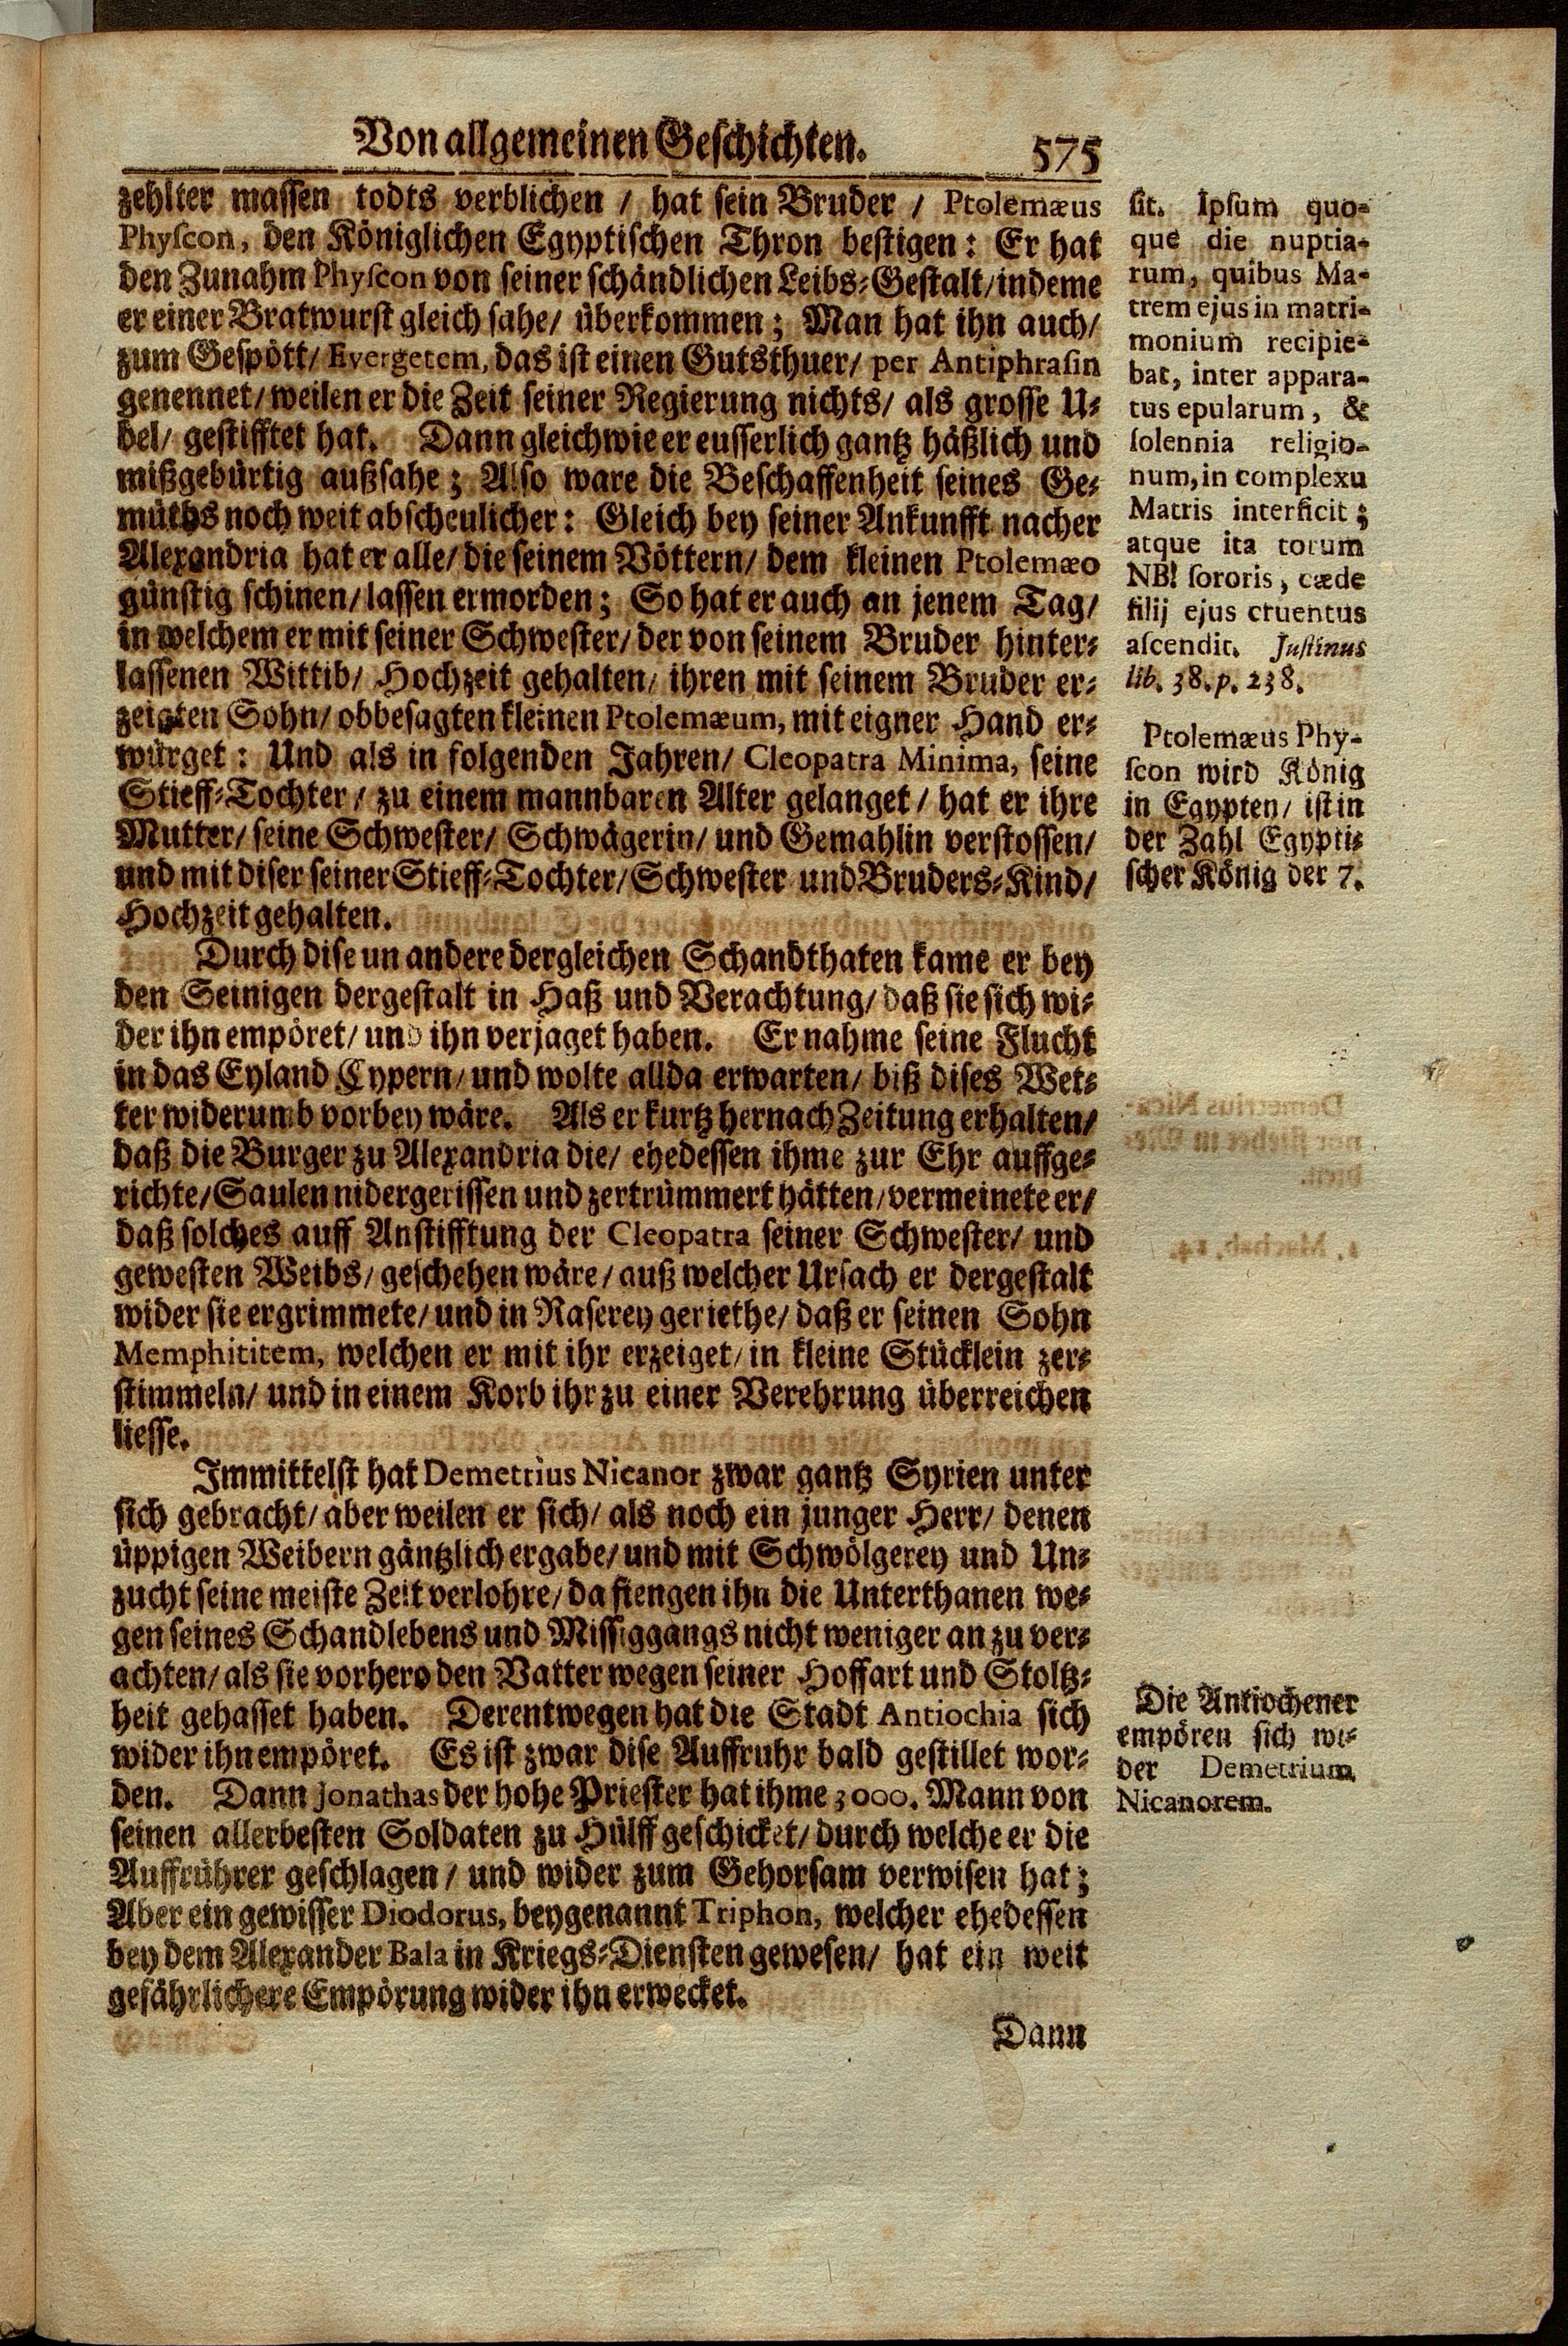 Von allgemeinen Geschichten. 575
zehlter massen todts verblichen / hat sein Bruder / Ptolemæus
Physcon, den Königlichen Egyptischen Thron bestigen: Er hat
den Zunahm Physcon von seiner schändlichen Leibs-Gestalt/indeme
er einer Bratwurst gleich sahe/ überkommen; Man hat ihn auch/
zum Gespött/ Evergetem, das ist einen Gutsthuer/ per Antiphrasin
genennet/weilen er die Zeit seiner Regierung nichts/ als grosse U-
bel/ gestifftet hat. Dann gleichwie er eusserlich gantz häßlich und
mißgebürtig außsahe; Also ware die Beschaffenheit seines Ge-
müths noch weit abscheulicher: Gleich bey seiner Ankunfft nacher
Alexandria hat er alle/ die seinem Vöttern/ dem kleinen Ptolemæo
günstig schinen/lassen ermorden; So hat er auch an jenem Tag/
in welchem er mit seiner Schwester/ der von seinem Bruder hinter-
lassenen Wittib/ Hochzeit gehalten/ ihren mit seinem Bruder er-
zeigten Sohn/ obbesagten kleinen Ptolemæum, mit eigner Hand er-
würget: Und als in folgenden Jahren/ Cleopatra Minima, seine
Stieff-Tochter / zu einem mannbaren Alter gelanget / hat er ihre
Mutter/ seine Schwester/ Schwägerin/ und Gemahlin verstossen/
und mit diser seiner Stieff-Tochter/Schwester und Bruders-Kind/
Hochzeit gehalten.
Durch dise un andere dergleichen Schandthaten kame er bey
den Seinigen dergestalt in Haß und Verachtung/ daß sie sich wi-
der ihn empöret/ und ihn verjaget haben. Er nahme seine Flucht
in das Eyland Cypern/ und wolte allda erwarten/ biß dises Wet-
ter widerumb vorbey wäre. Als er kurtz hernach Zeitung erhalten/
daß die Burger zu Alexandria die/ ehedessen ihme zur Ehr auffge-
richte/Saulen nidergerissen und zertrümmert hätten/vermeinete er/
daß solches auff Anstifftung der Cleopatra seiner Schwester/ und
gewesten Weibs/ geschehen wäre/ auß welcher Ursach er dergestalt
wider sie ergrimmete/ und in Raserey geriethe/ daß er seinen Sohn
Memphititem, welchen er mit ihr erzeiget/ in kleine Stücklein zer-
stimmeln/ und in einem Korb ihr zu einer Verehrung überreichen
liesse.
Immittelst hat Demetrius Nicanor zwar gantz Syrien unter
sich gebracht/ aber weilen er sich/ als noch ein junger Herr/ denen
üppigen Weibern gäntzlich ergabe/ und mit Schwölgerey und Un-
zucht seine meiste Zeit verlohre/ da fiengen ihn die Unterthanen we-
gen seines Schandlebens und Missiggangs nicht weniger an zu ver-
achten/ als sie vorhero den Vatter wegen seiner Hoffart und Stoltz-
heit gehasset haben. Derentwegen hat die Stadt Antiochia sich
wider ihn empöret. Es ist zwar dise Auffruhr bald gestillet wor-
den. Dann Jonathas der hohe Priester hat ihme 3000. Mann von
seinen allerbesten Soldaten zu Hülff geschicket/ durch welche er die
Auffrührer geschlagen / und wider zum Gehorsam verwisen hat;
Aber ein gewisser Diodorus, beygenannt Triphon, welcher ehedessen
bey dem Alexander Bala in Kriegs-Diensten gewesen/ hat ein weit
gefährlichere Empörung wider ihn erwecket.
Dann
sit. Ipsum quo-
que die nuptia-
rum, quibus Ma-
trem ejus in matri-
monium recipie-
bat, inter appara-
tus epularum, &
solennia religio-
num, in complexu
Matris interficit;
atque ita torum
NB! sororis, cæde
filij ejus cruentus
ascendit. Justinus
lib. 38. p. 238.
Ptolemæus Phy-
scon wird König
in Egypten/ ist in
der Zahl Egypti-
scher König der 7.
Die Antiochener
empören sich wi-
der Demetrium
Nicanorem.